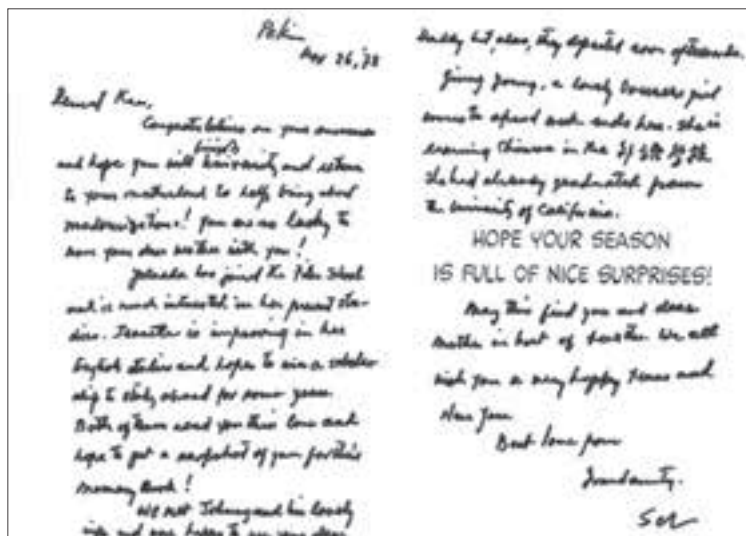 Nov 26, '78
Dearest Ken,
Congratulations on your success
finish
and hope you will university and return
to your motherland to help bring about
modernization! You are so lucky to
have your dear mother with you!
has joined the School
and is much interested in her present stu-
dies. is improving in her
English studies and hopes to win a scholar
ship to study abroad for some years.
Both of them send you their love and
hope to get a snapshot of you for their
Memory Book!
We met Johnny and his lovely
wife and were happy to see your dear
Daddy but, alas, they departed soon afterwards.
a lovely girl
comes to spend week ends here. She is
learning Chinese in the
She had already graduated from
the University of California.
HOPE YOUR SEASON
IS FULL OF NICE SURPRISES!
May this find you and dear
Mother in best of health. We all
wish you a very happy Xmas and
New Year
Best love from
Grandaunty.